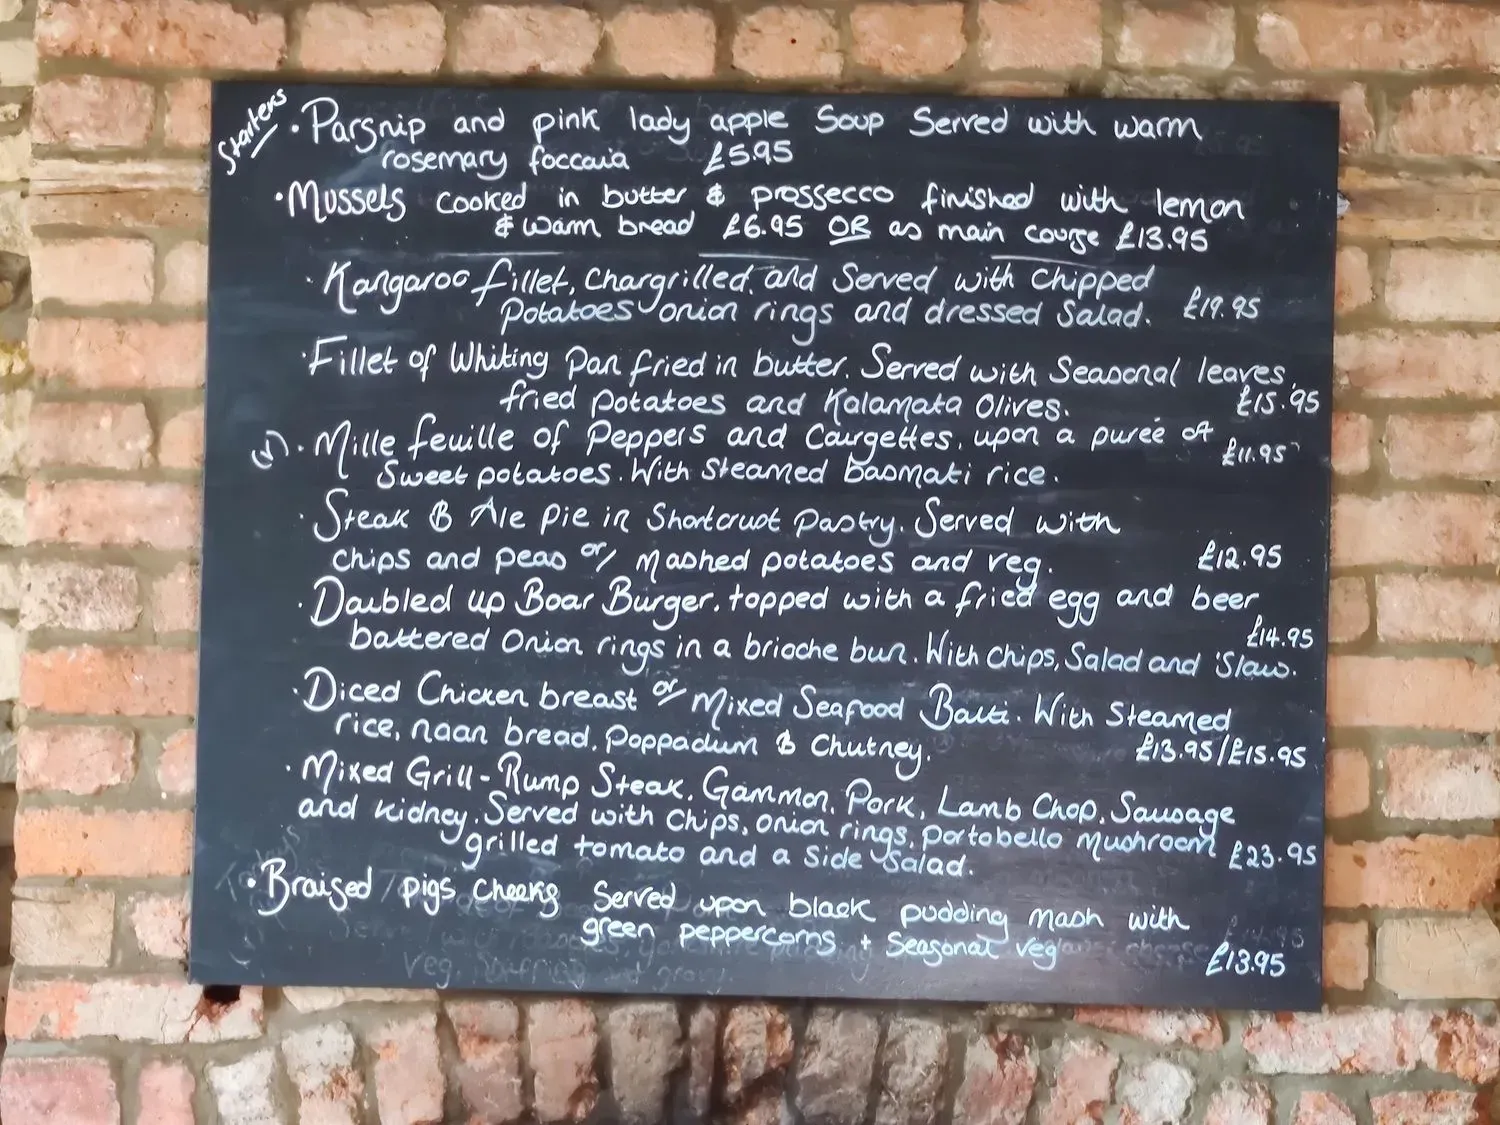 Starters
• Parsnip and pink lady apple Soup Served with warm
rosemary foccaia £5.95
• Mussels cooked in butter & prossecco finished with lemon
& warm bread £6.95 OR as main course £13.95
• Kangaroo fillet, Chargrilled, and Served with Chipped
Potatoes onion rings and dressed Salad. £19.95
• Fillet of Whiting Pan fried in butter. Served with Seasonal leaves,
fried potatoes and Kalamata Olives. £15.95
(v) • Mille feuille of Peppers and Courgettes, upon a puree of
Sweet potatoes. With Steamed basmati rice. £11.95
• Steak & Ale Pie in Shortcrust Pastry. Served with
Chips and peas or/ Mashed potatoes and veg. £12.95
• Doubled up Boar Burger. topped with a fried egg and beer
battered Onion rings in a brioche bun. With Chips, Salad and 'Slaw. £14.95
• Diced Chicken breast or/ Mixed Seafood Balti. With Steamed
rice, naan bread, Poppadum & Chutney. £13.95/£15.95
• Mixed Grill - Rump Steak, Gammon, Pork, Lamb Chop, Sausage
and kidney. Served with Chips, onion rings, portobello Mushroom
grilled tomato and a Side Salad. £23.95
• Braised pigs Cheeks Served upon black pudding mash with
green peppercorns + Seasonal veg £13.95